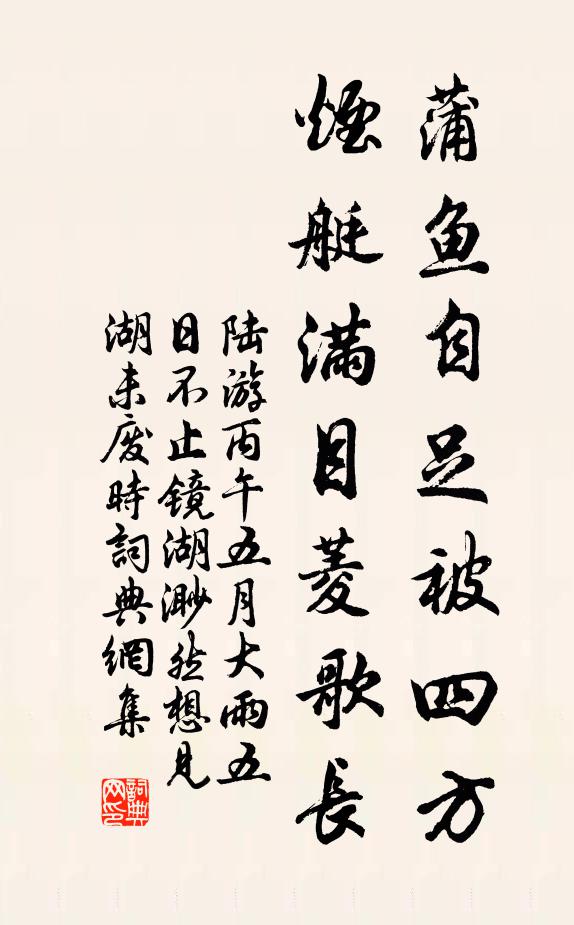 蒲鱼自足被四方
煙艇滿目菱歌長
陆游丙午五月大雨五
日不止鏡湖渺然想見
湖未废時詞典網集
詞典
网印